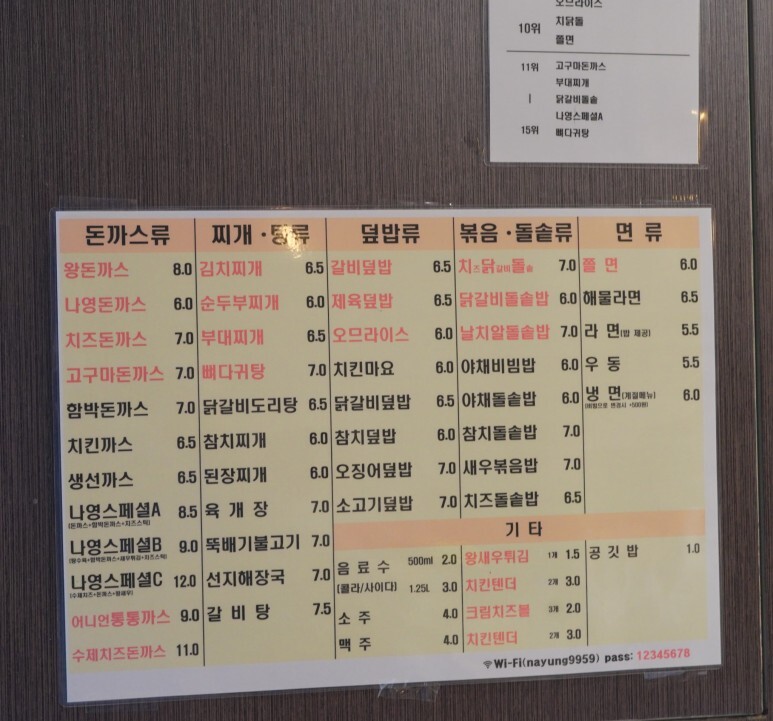 오므라이스
10위 치닭돌
쫄면
11위 고구마돈까스
부대찌개
| 닭갈비돌솥
나영스페셜A
15위 뼈다귀탕
돈까스류
왕돈까스 8.0
나영돈까스 6.0
치즈돈까스 7.0
고구마돈까스 7.0
함박돈까스 7.0
치킨까스 6.5
생선까스 6.5
나영스페셜A 8.5
(돈까스+함박돈까스+치즈스틱)
나영스페셜B 9.0
나영스페셜C 12.0
어니언통통까스 9.0
수제치즈돈까스 11.0
찌개·탕류
김치찌개 6.5
순두부찌개 6.0
부대찌개 6.5
뼈다귀탕 7.0
닭갈비도리탕 6.5
참치찌개 6.0
된장찌개 6.0
육개장 7.0
뚝배기불고기 7.0
선지해장국 7.0
갈비탕 7.5
덮밥류
갈비덮밥 6.5
제육덮밥 6.5
오므라이스 6.0
치킨마요 6.0
닭갈비덮밥 6.5
참치덮밥 6.0
오징어덮밥 7.0
소고기덮밥 7.0
볶음·돌솥류
치즈닭갈비돌솥 7.0
닭갈비돌솥밥 6.0
날치알돌솥밥 7.0
야채비빔밥 6.0
야채돌솥밥 6.0
참치돌솥밥 7.0
새우볶음밥 7.0
치즈돌솥밥 6.5
면류
쫄면 6.0
해물라면 6.5
라면(밥 제공) 5.5
우동 5.5
냉면(계절메뉴) 6.0
(비빔으로 변경시 +500원)
기타
음료수 500ml 2.0
(콜라/사이다) 1.25L 3.0
소주 4.0
맥주 4.0
왕새우튀김 1개 1.5
치킨텐더 2개 3.0
크림치즈볼 3개 2.0
치킨텐더 2개 3.0
공깃밥 1.0
Wi-Fi(nayung9959) pass: 12345678